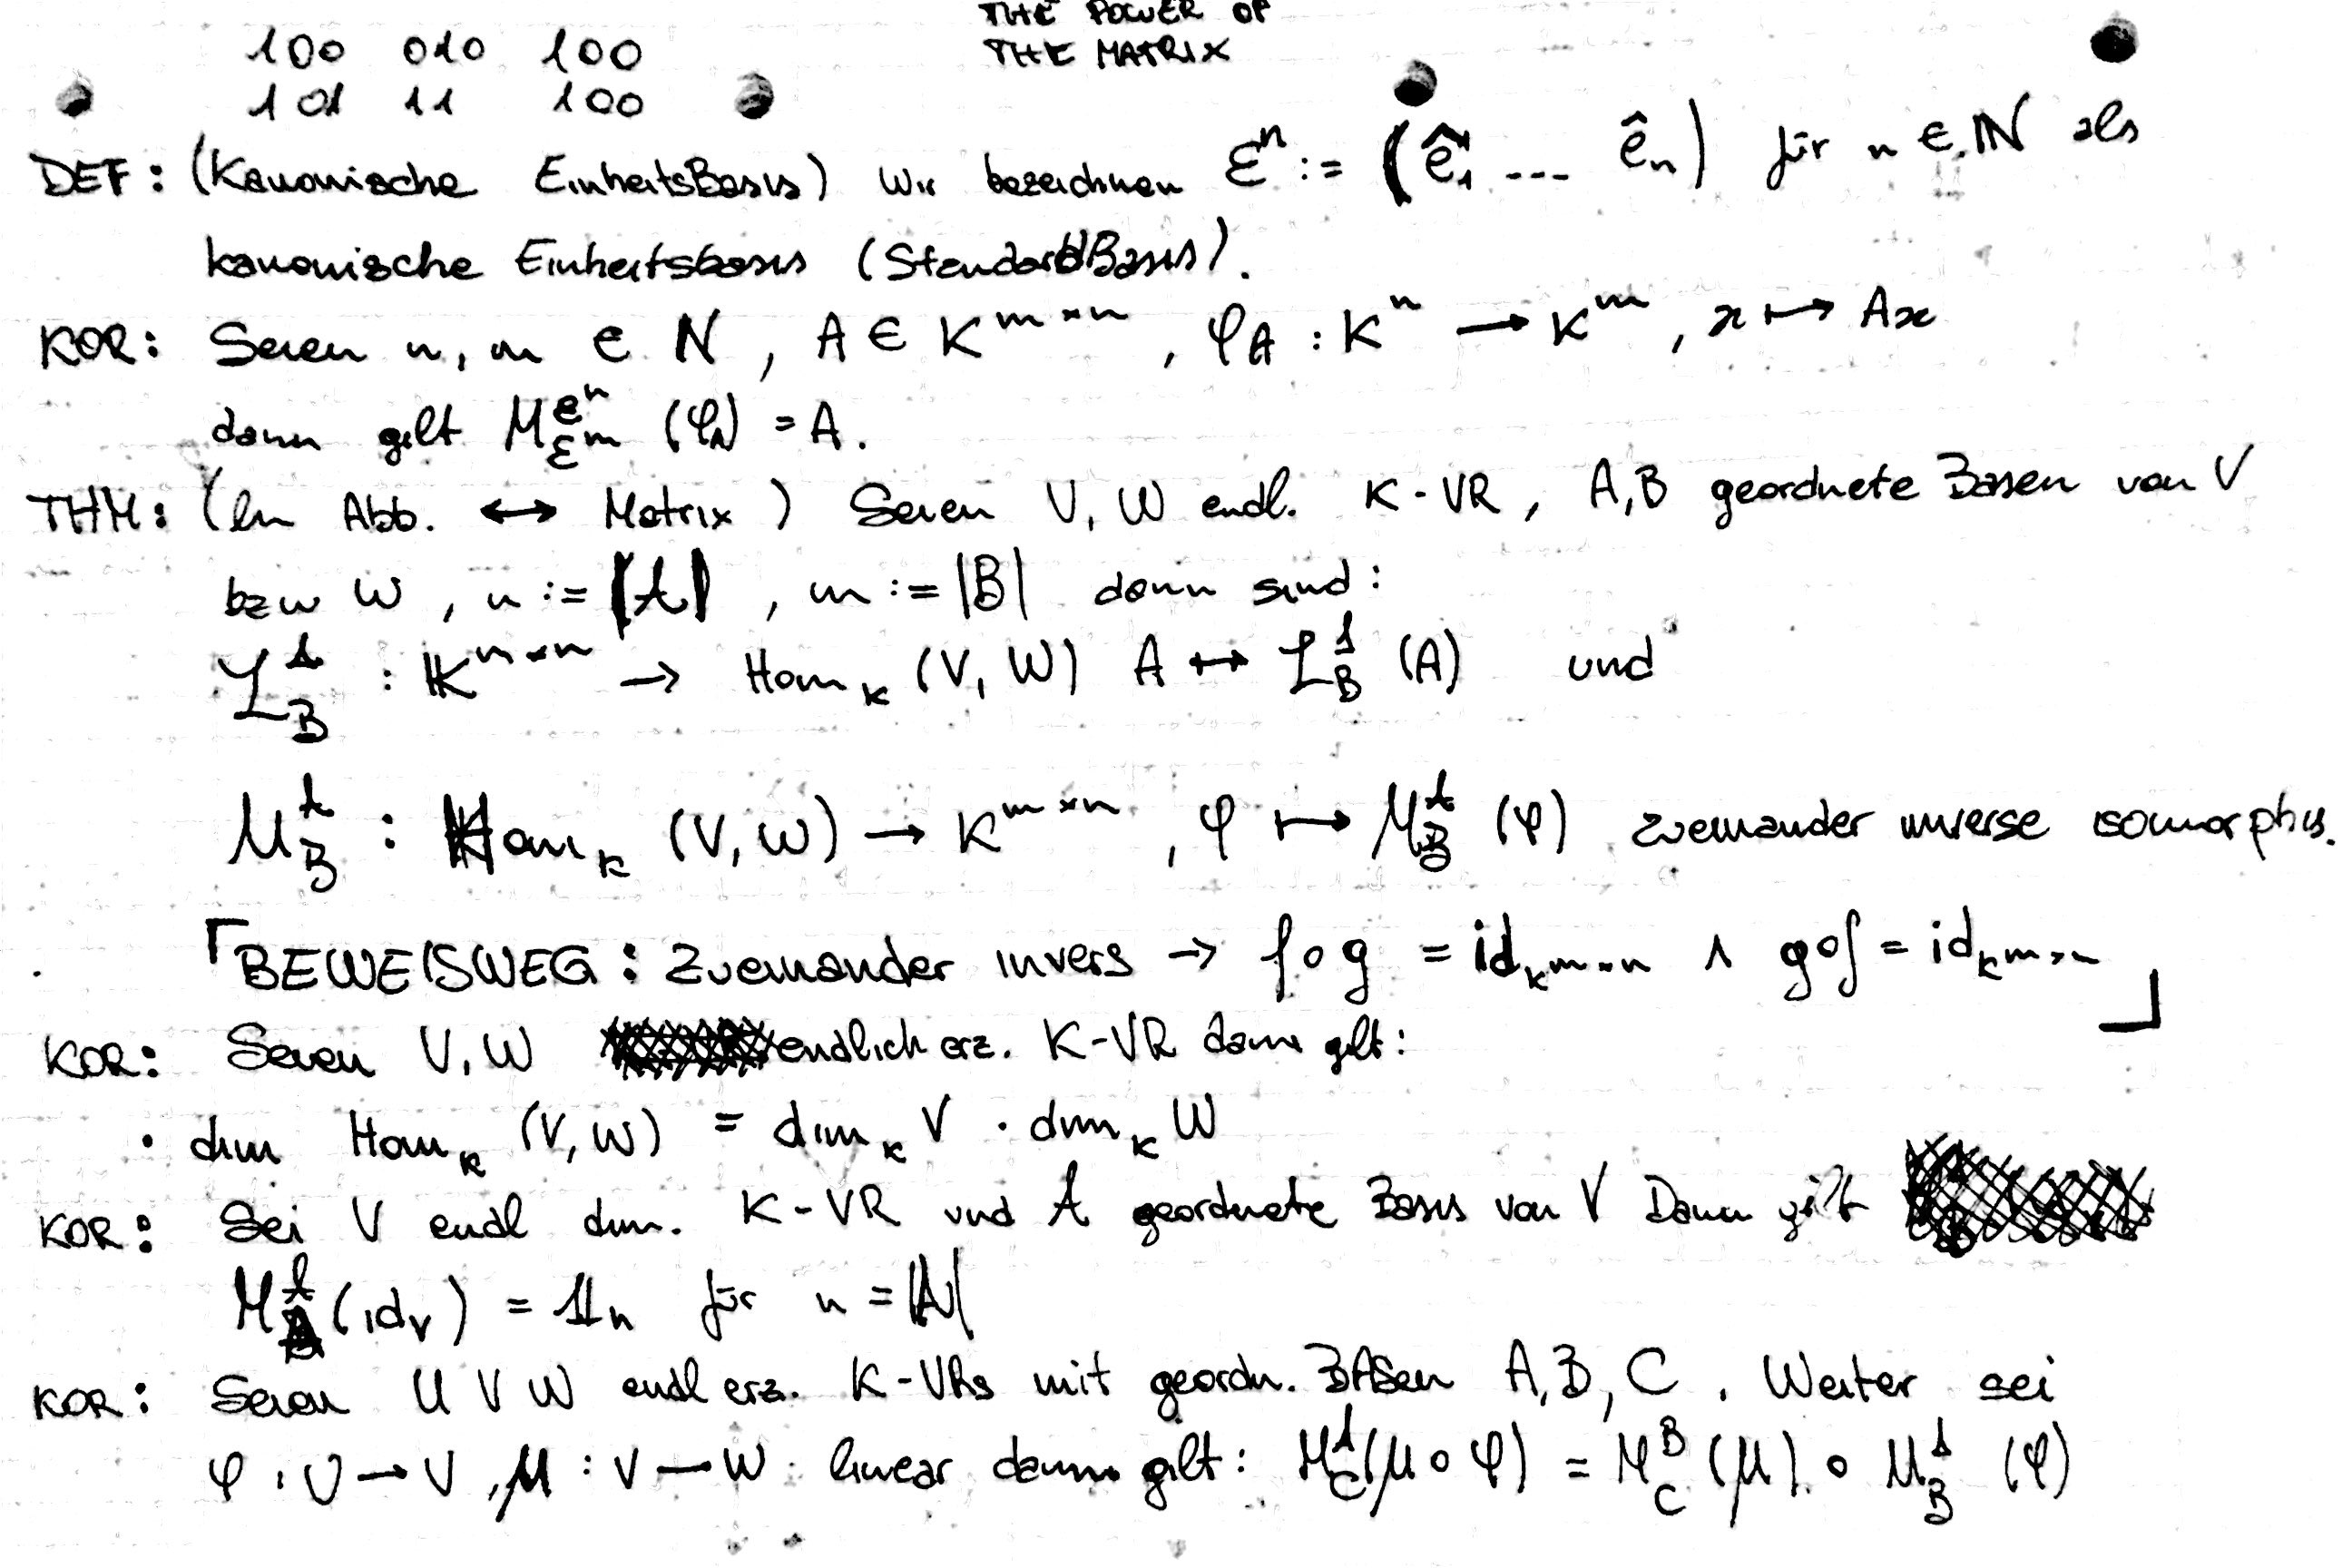 THE POWER OF
THE MATRIX
100 010 100
101 11 100
DEF: (Kanonische EinheitsBasis) Wir bezeichnen Ɛⁿ := (ê₁ ... êₙ) für n ∈ ℕ als
kanonische Einheitsbasis (StandardBasis).
KOR: Seien n, m ∈ N, A ∈ K^{m×n}, φ_A : Kⁿ → K^m, x ↦ Ax
dann gilt M^{Ɛⁿ}_{Ɛ^m} (φ_A) = A.
THM: (lin Abb. ↔ Matrix) Seien V, W endl. K-VR, A,B geordnete Basen von V
bzw W, n := |A|, m := |B| dann sind:
L^A_B : K^{m×n} → Hom_K (V, W) A ↦ L^A_B (A) und
M^A_B : Hom_K (V, W) → K^{m×n}, φ ↦ M^A_B (φ) zueinander inverse isomorphis.
⌈BEWEISWEG: Zueinander invers → f∘g = id_{K^{m×n}} ∧ g∘f = id_{K^{m×n}}⌋
KOR: Seien V, W endlich erz. K-VR dann gilt:
• dim Hom_K (V, W) = dim_K V · dim_K W
KOR: Sei V endl dim. K-VR und A geordnete Basis von V Dann gilt
M^A_A (id_V) = 𝟙ₙ für n = |A|
KOR: Seien U V W endl erz. K-VRs mit geordn. BASen A, B, C. Weiter sei
φ : U → V, μ : V → W linear dann gilt: M^A_C (μ ∘ φ) = M^B_C (μ) ∘ M^A_B (φ)